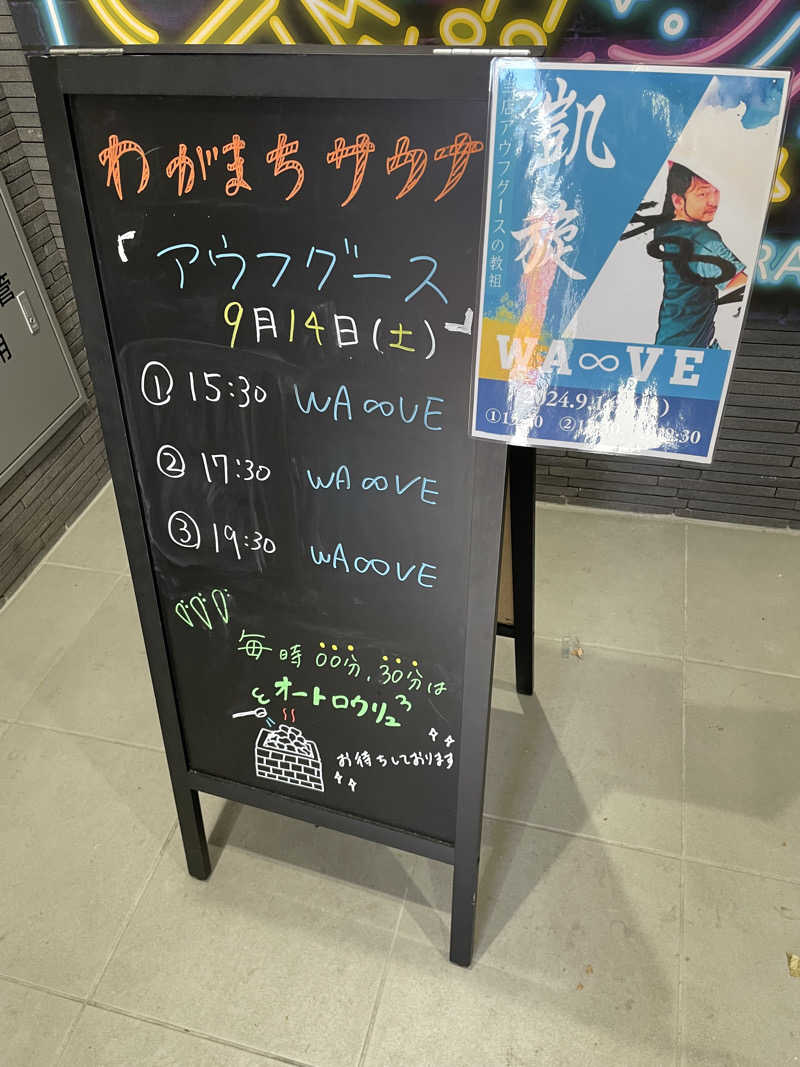 わがまちサウナ
「アウフグース
9月14日(土)」
① 15:30 WA∞VE
② 17:30 WA∞VE
③ 19:30 WA∞VE
毎時00分、30分は
オートロウリュ
お待ちしております
凱旋
当店アウフグースの教祖
WA∞VE
2024.9.14
①15:30 ②17:30 19:30
RA
管
用